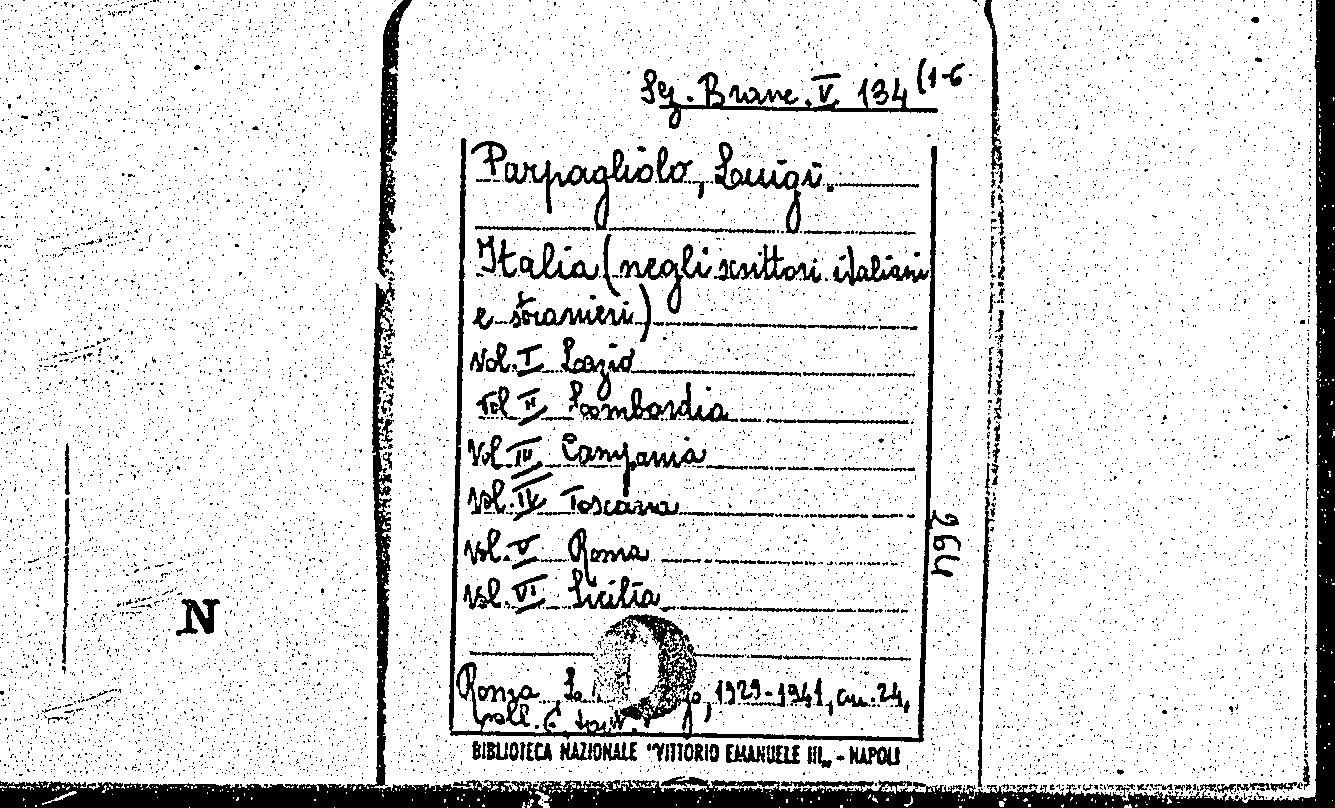 Sez. Branc. V 134 (1-6
Parpagliolo, Luigi.
Italia (negli scrittori italiani
e stranieri)
vol. I Lazio
vol. II Lombardia
vol. III Campania
vol. IV Toscana
vol. V Roma
vol. VI Sicilia
264
N
Roma, 1929-1941, cm. 24,
BIBLIOTECA NAZIONALE "VITTORIO EMANUELE III„ - NAPOLI